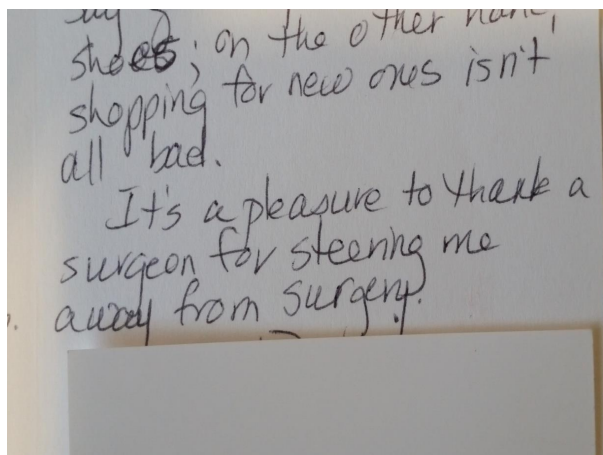 shoes; on the other hand,
shopping for new ones isn't
all bad.
It's a pleasure to thank a
surgeon for steering me
away from surgery.